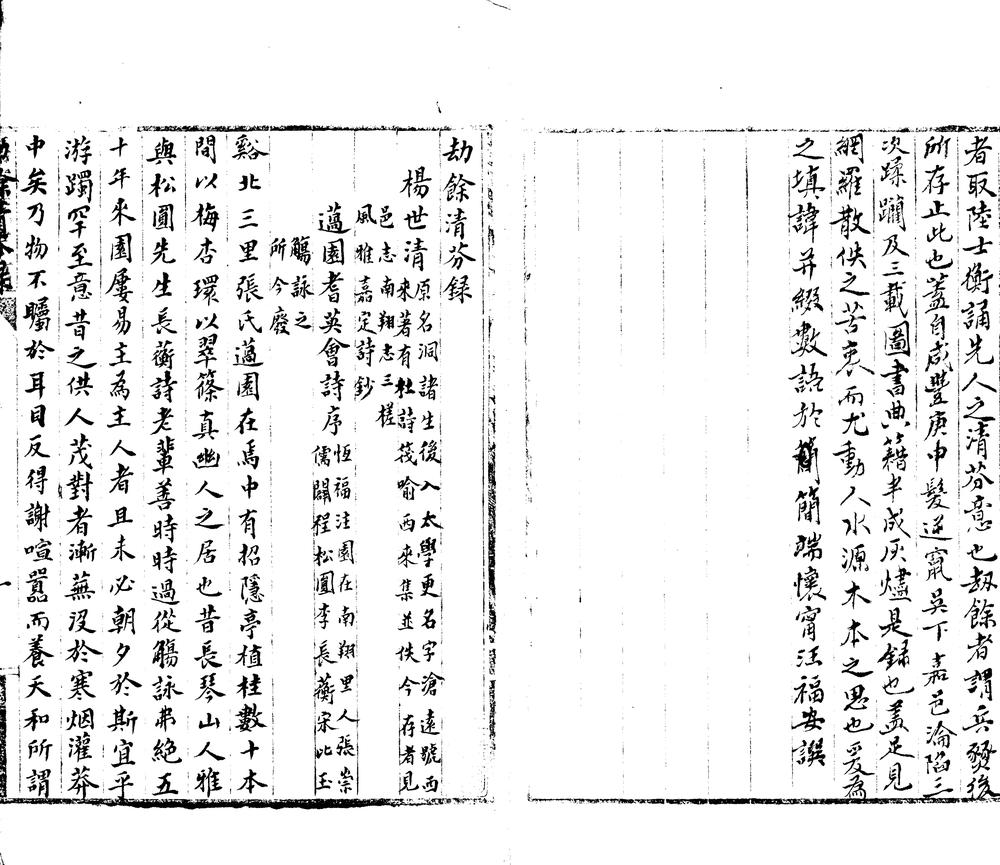 者取陸士衡誦先人之清芬意也刼餘者謂兵燹後
所存止此也蓋自咸豐庚申髮逆竄吳下嘉邑淪陷三
次蹂躪及三載圖書典籍半成灰燼是録也蓋足見
網羅散佚之苦衷而尤動人水源木本之思也爰為
之填諱并綴數語於簡端懷甯汪福安譔
劫餘清芬録
楊世清原名洞諸生後入太學更名字滄遠號西
來著有杜詩筏喻西來集並佚今存者見
邑志南翔志三槎
風雅嘉定詩鈔
薖園耆英會詩序恆福注園在南翔里人張崇
儒闢程松圓李長蘅宋比玉
觴詠之
所今廢
谿北三里張氏薖園在焉中有招隱亭植桂數十本
間以梅杏環以翠篠真幽人之居也昔長琴山人雅
與松圓先生長蘅詩老輩善時時過從觴詠弗絕五
十年來園屢易主為主人者且未必朝夕於斯宜乎
游躅罕至意昔之供人茂對者漸蕪沒於寒烟灌莽
中矣乃物不矚於耳目反得謝喧囂而養天和所謂
餘清芬録
一